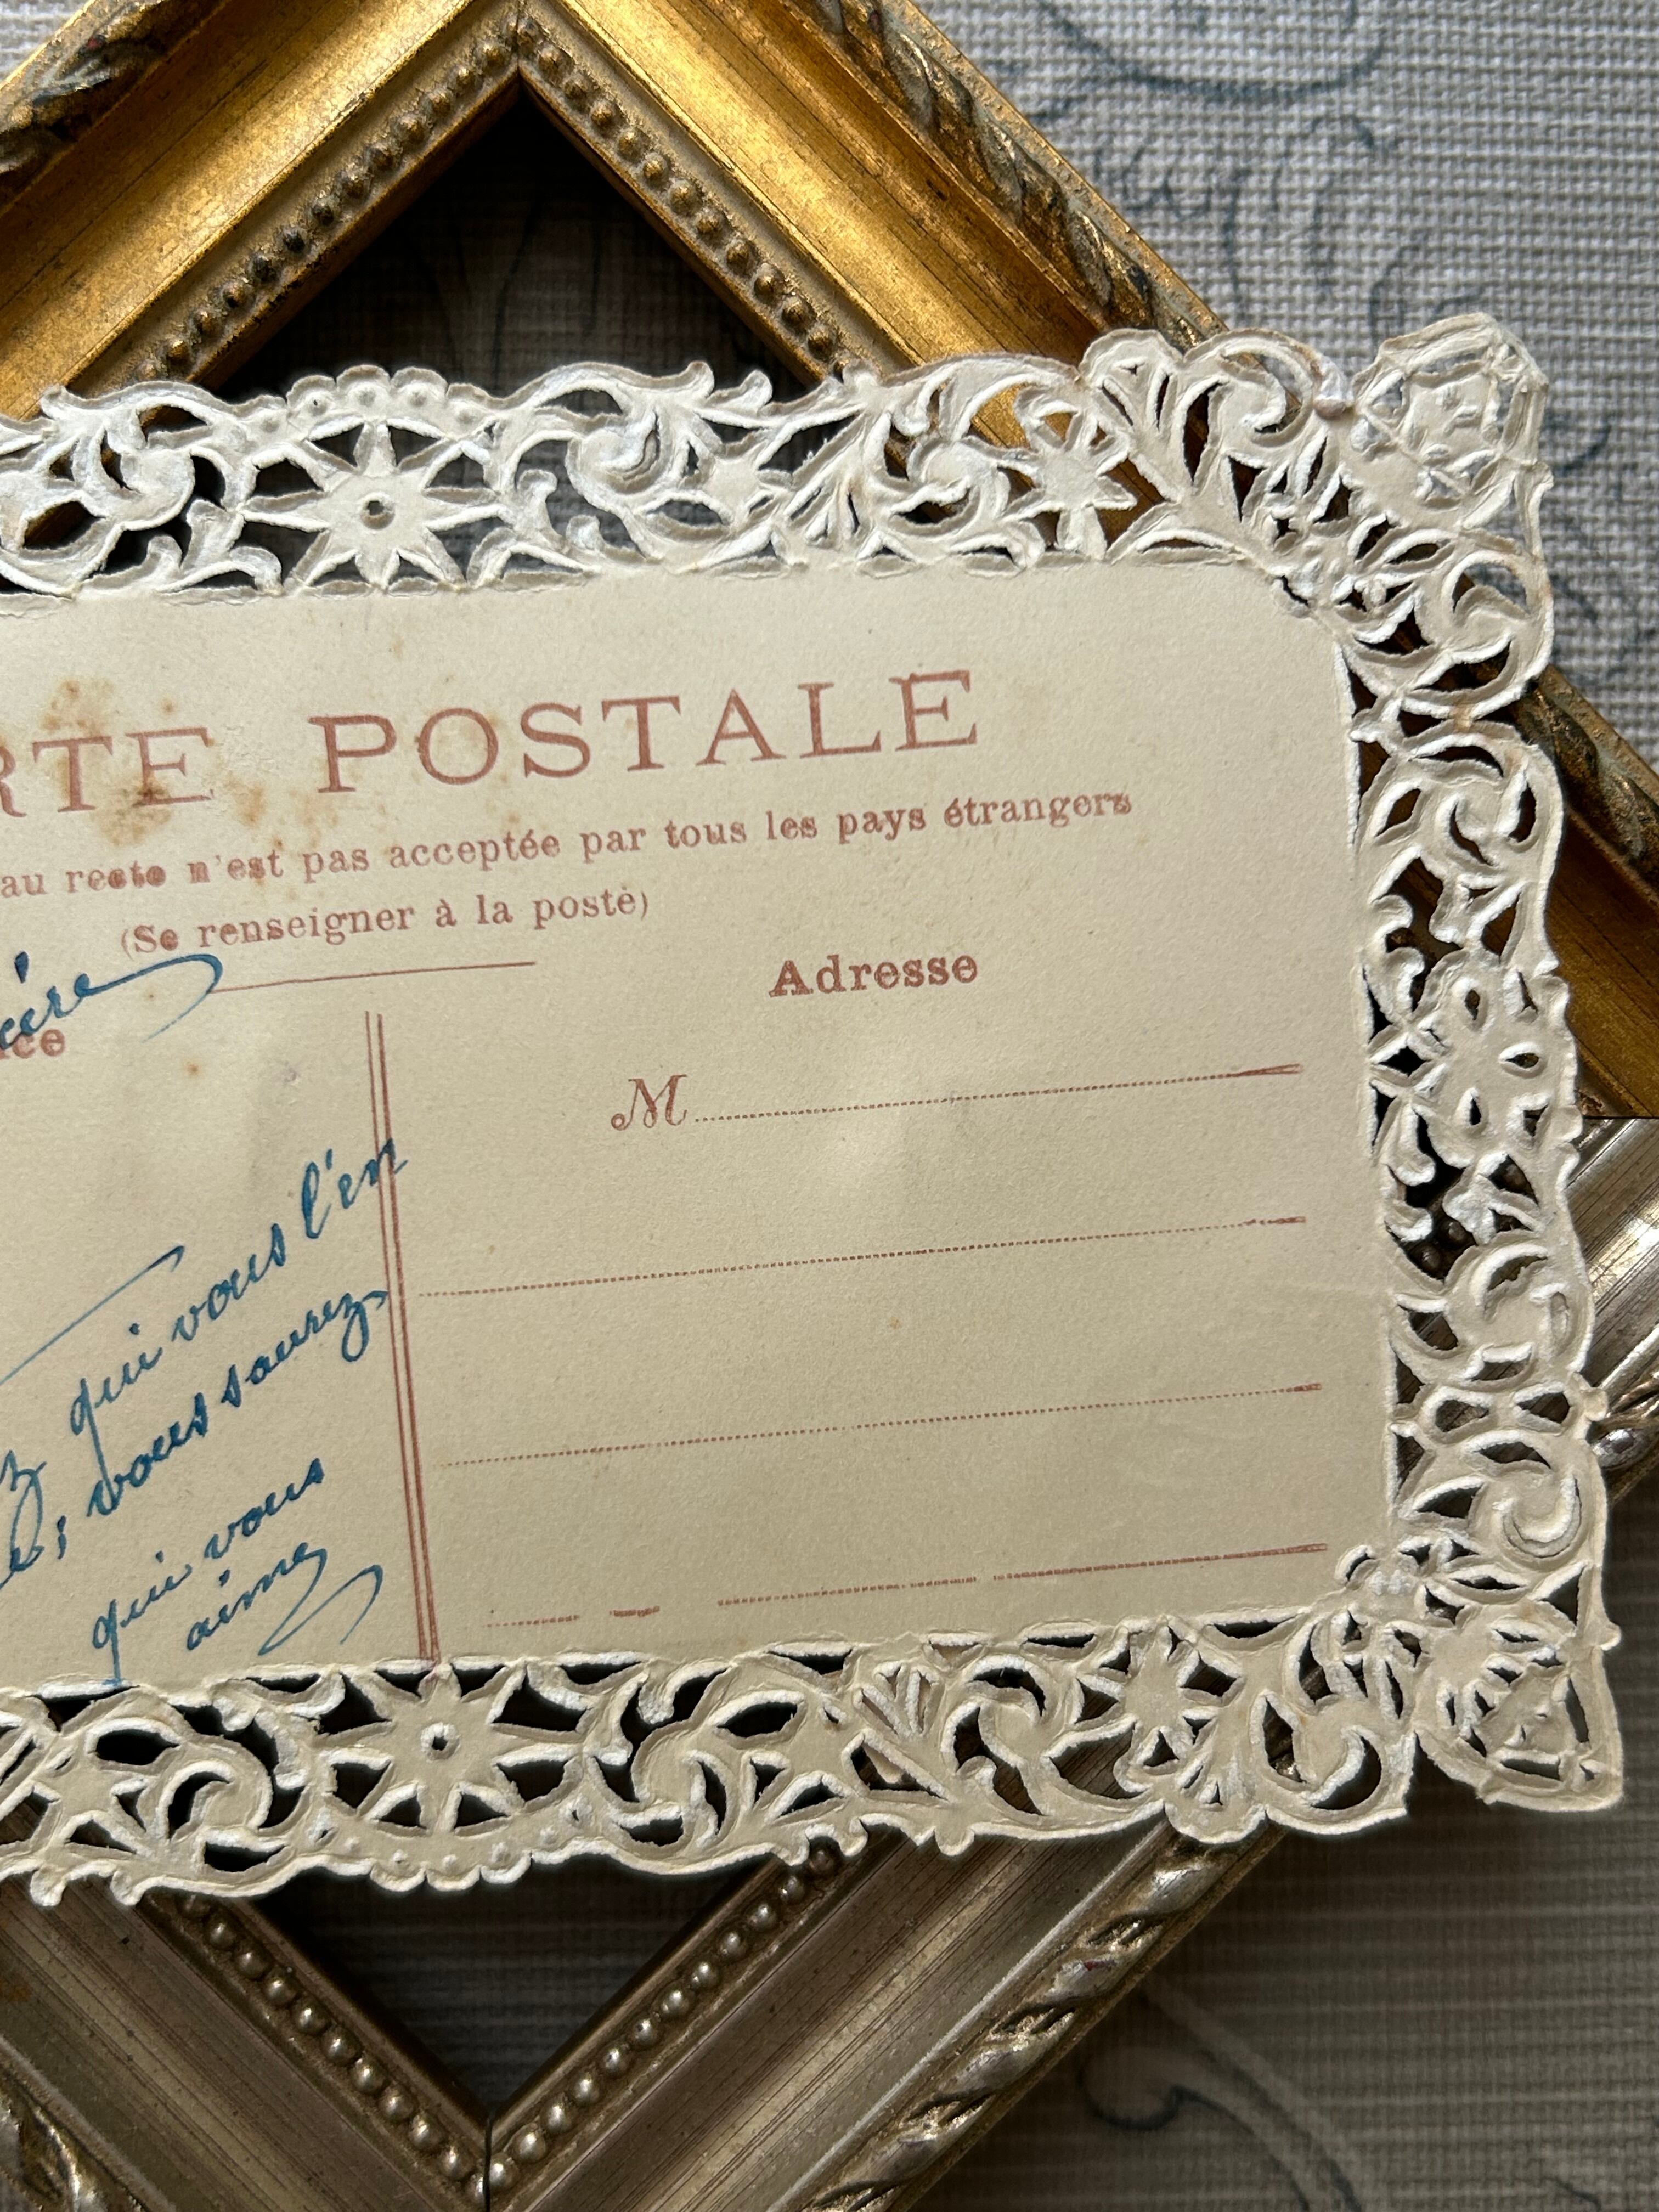 RTE POSTALE
au resto n'est pas acceptée par tous les pays étrangers
(Se renseigner à la poste)
Adresse
M
qui vous l'en
vous saurez
qui vous
aime